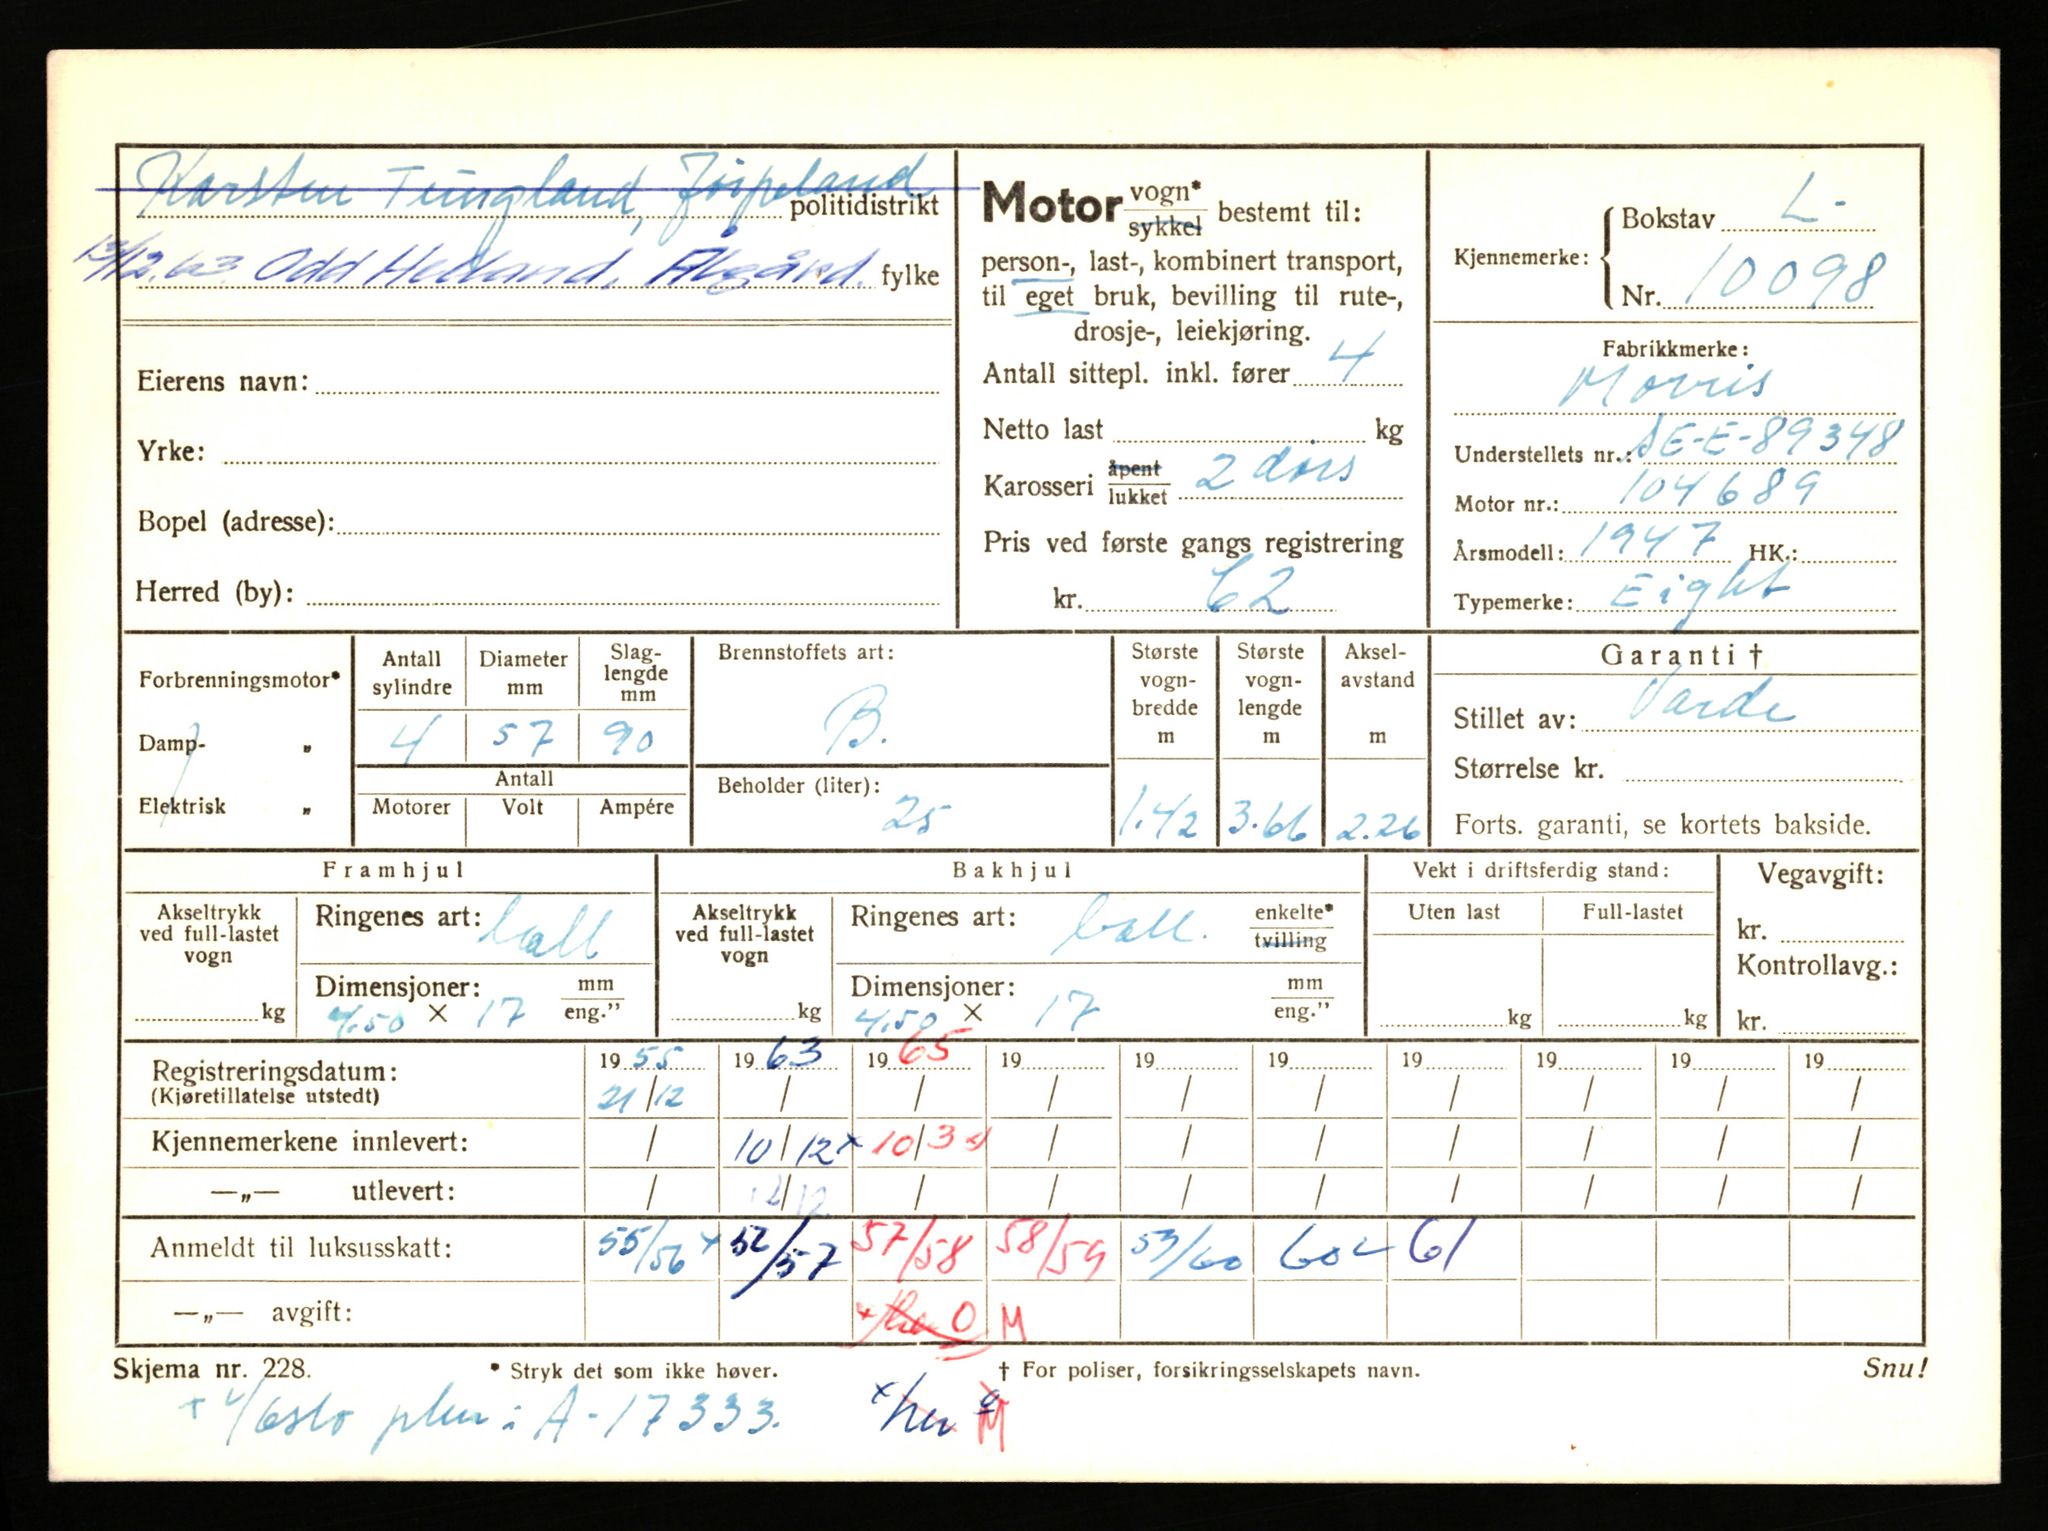 Karsten Tungland, Jørpeland politidistrikt
13/12.63. Odd Hetland, Ålgård. fylke
Eierens navn:
Yrke:
Bopel (adresse):
Herred (by):
Motor vogn* / sykkel bestemt til:
person-, last-, kombinert transport,
til eget bruk, bevilling til rute-,
drosje-, leiekjøring.
Antall sittepl. inkl. fører 4
Netto last kg
Karosseri åpent / lukket 2 dørs
Pris ved første gangs registrering
kr. 62
Kjennemerke: Bokstav L-
Nr. 10098
Fabrikkmerke:
Morris
Understellets nr.: SE-E-89348
Motor nr.: 104689
Årsmodell: 1947 HK.:
Typemerke: Eight
Forbrenningsmotor*
Damp- „
Elektrisk „
Antall sylindre Diameter mm Slag-lengde mm
4 57 90
Antall
Motorer Volt Ampére
Brennstoffets art:
B.
Beholder (liter):
25
Største vogn-bredde m Største vogn-lengde m Aksel-avstand m
1.42 3.66 2.26
Garanti †
Stillet av: Varde
Størrelse kr.
Forts. garanti, se kortets bakside.
Framhjul
Akseltrykk ved full-lastet vogn
kg
Ringenes art: ball
Dimensjoner: mm / eng.”
4.50 × 17
Bakhjul
Akseltrykk ved full-lastet vogn
kg
Ringenes art: ball. enkelte* / tvilling
Dimensjoner: mm / eng.”
4.50 × 17
Vekt i driftsferdig stand:
Uten last Full-lastet
kg kg
Vegavgift:
kr.
Kontrollavg.:
kr.
Registreringsdatum: 19 55 19 63 19 65 19 19 19 19 19 19 19
(Kjøretillatelse utstedt) 21/12 / / / / / / / / /
Kjennemerkene innlevert: / 10/12 x 10/3 / / / / / / /
—„— utlevert: / 12/12 / / / / / / / /
Anmeldt til luksusskatt: 55/56 x 52/57 57/58 58/59 53/60 60 61
—„— avgift: O M
Skjema nr. 228. * Stryk det som ikke høver. † For poliser, forsikringsselskapets navn. Snu!
+ 4/6 A-17333. x her M